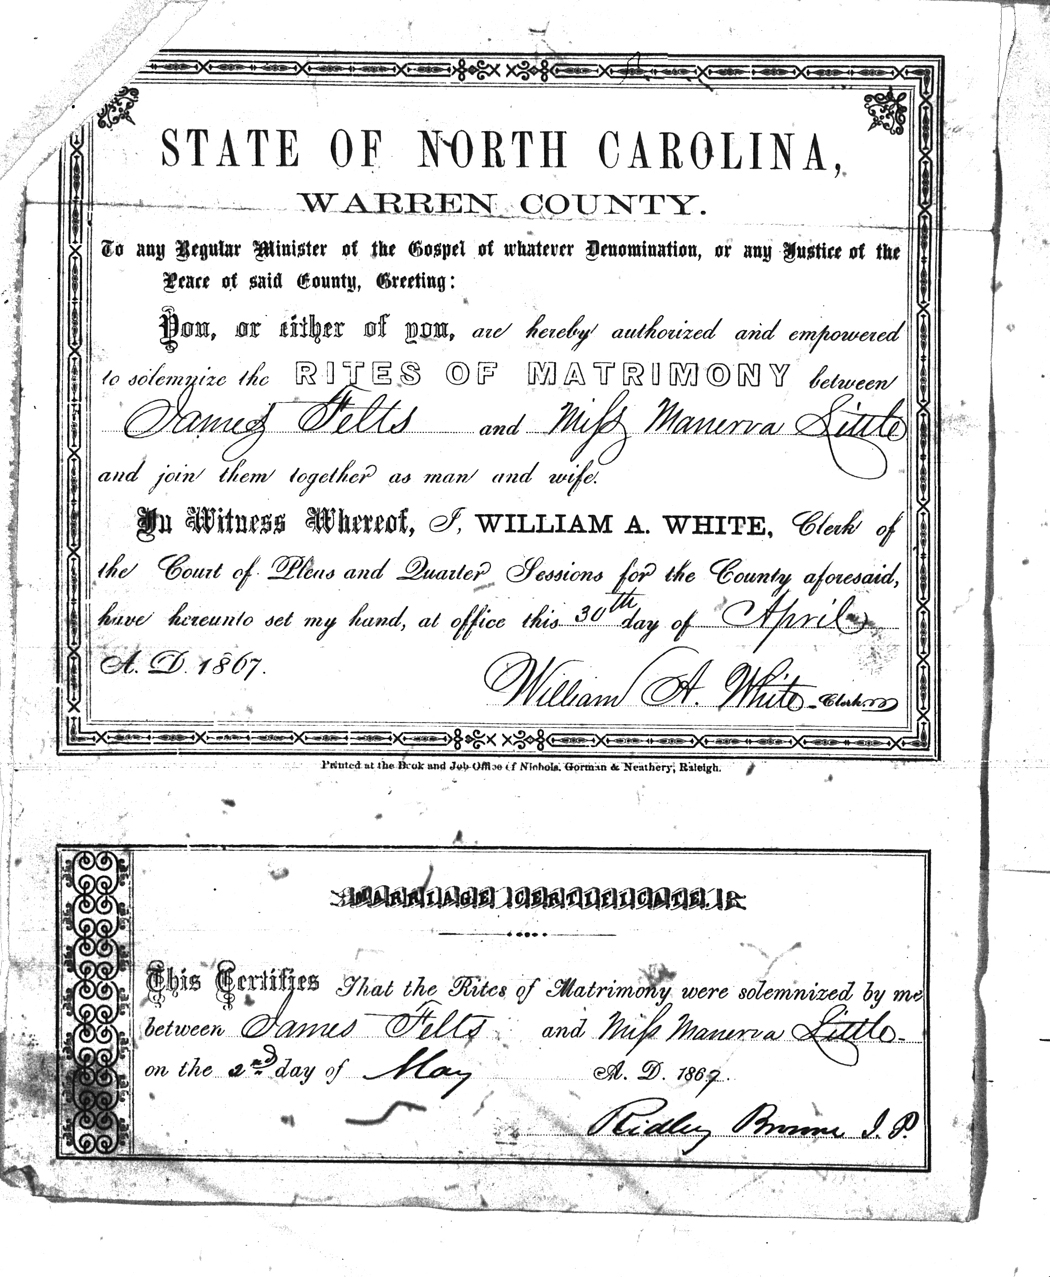 STATE OF NORTH CAROLINA,
WARREN COUNTY.
To any Regular Minister of the Gospel of whatever Denomination, or any Justice of the
Peace of said County, Greeting:
You, or either of you, are hereby authorized and empowered
to solemnize the RITES OF MATRIMONY between
James Felts and Miss Manerva Little
and join them together as man and wife.
In Witness Whereof, I, WILLIAM A. WHITE, Clerk of
the Court of Pleas and Quarter Sessions for the County aforesaid,
have hereunto set my hand, at office this 30th day of April
A. D. 1867.
William A. White Clerk.
Printed at the Book and Job Office of Nichols, Gorman & Neathery, Raleigh.
MARRIAGE CERTIFICATE.
This Certifies That the Rites of Matrimony were solemnized by me
between James Felts and Miss Manerva Little
on the 2nd day of May A. D. 1867.
Ridley Browne J. P.